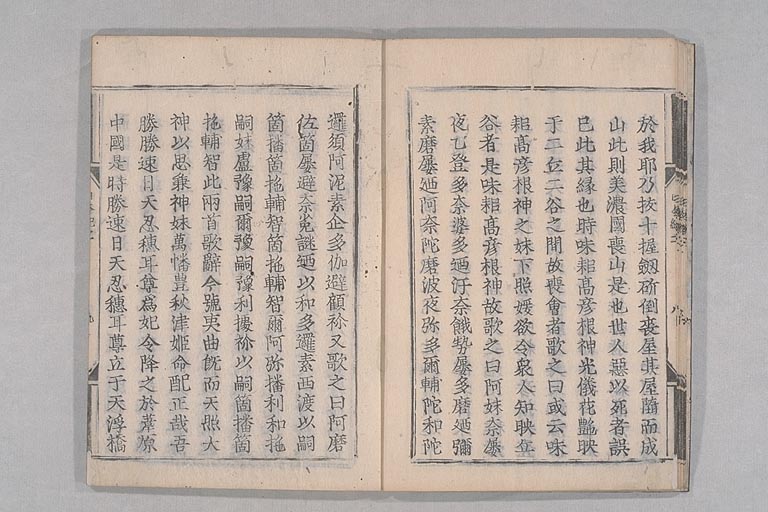 於我耶乃抜十握劔斫倒喪屋其屋隨而成
山此則美濃國喪山是也世人惡以死者誤
己此其縁也時味耜髙彦根神光儀花艶映
于二丘二谷之間故喪會者歌之曰或云味
耜髙彦根神之妹下照媛欲令衆人知映丘
谷者是味耜髙彦根神故歌之曰阿妹奈屡
夜乙登多奈婆多廼汙奈餓勢屡多磨廼彌
素磨屡廼阿奈陀磨波夜弥多爾輔陀和陀
邏須阿泥素企多伽避顧祢又歌之曰阿磨
佐箇屡避奈菟謎廼以和多邏素西渡以嗣
箇播箇拕輔智箇拕輔智爾阿弥播利和拕
嗣妹盧豫嗣爾豫嗣豫利據祢以嗣箇播箇
拕輔智此兩首歌辭今號夷曲既而天照大
神以思兼神妹萬幡豊秋津姫命配正哉吾
勝勝速日天忍穗耳尊為妃令降之於葦原
中國是時勝速日天忍穗耳尊立于天浮橋